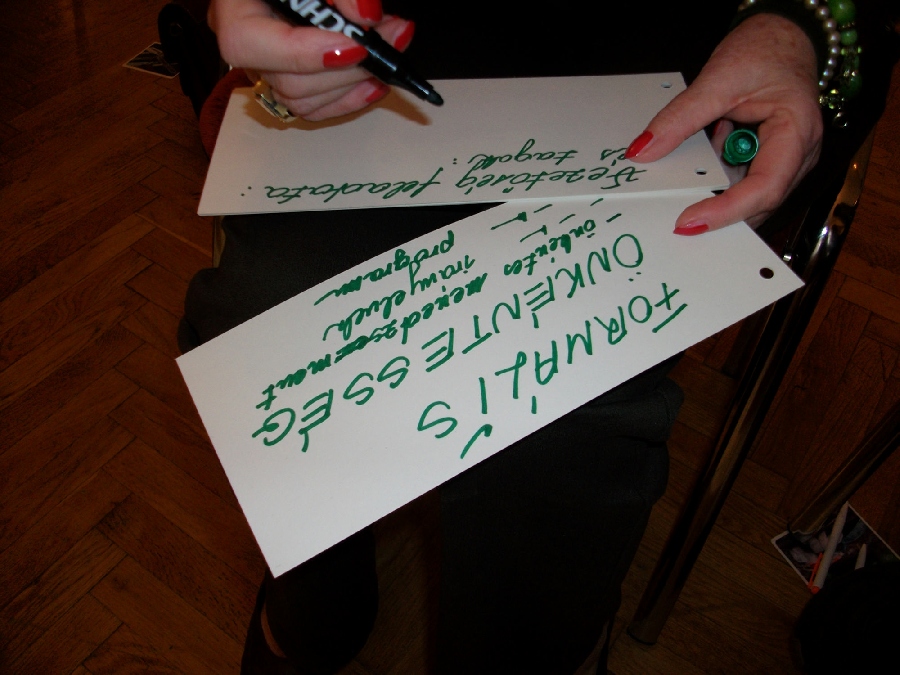 SCHN
Vezetőség feladata:
és tagok:
FORMÁLIS
ÖNKÉNTESSÉG
- önkéntes menedzsment
irányelvek
program